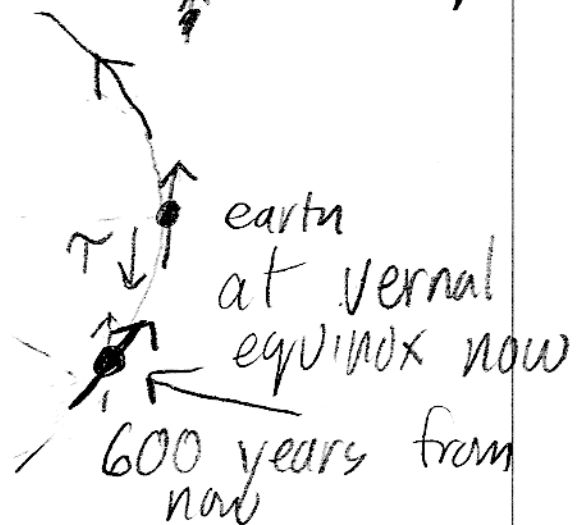 earth
at vernal
equinox now
600 years from
now